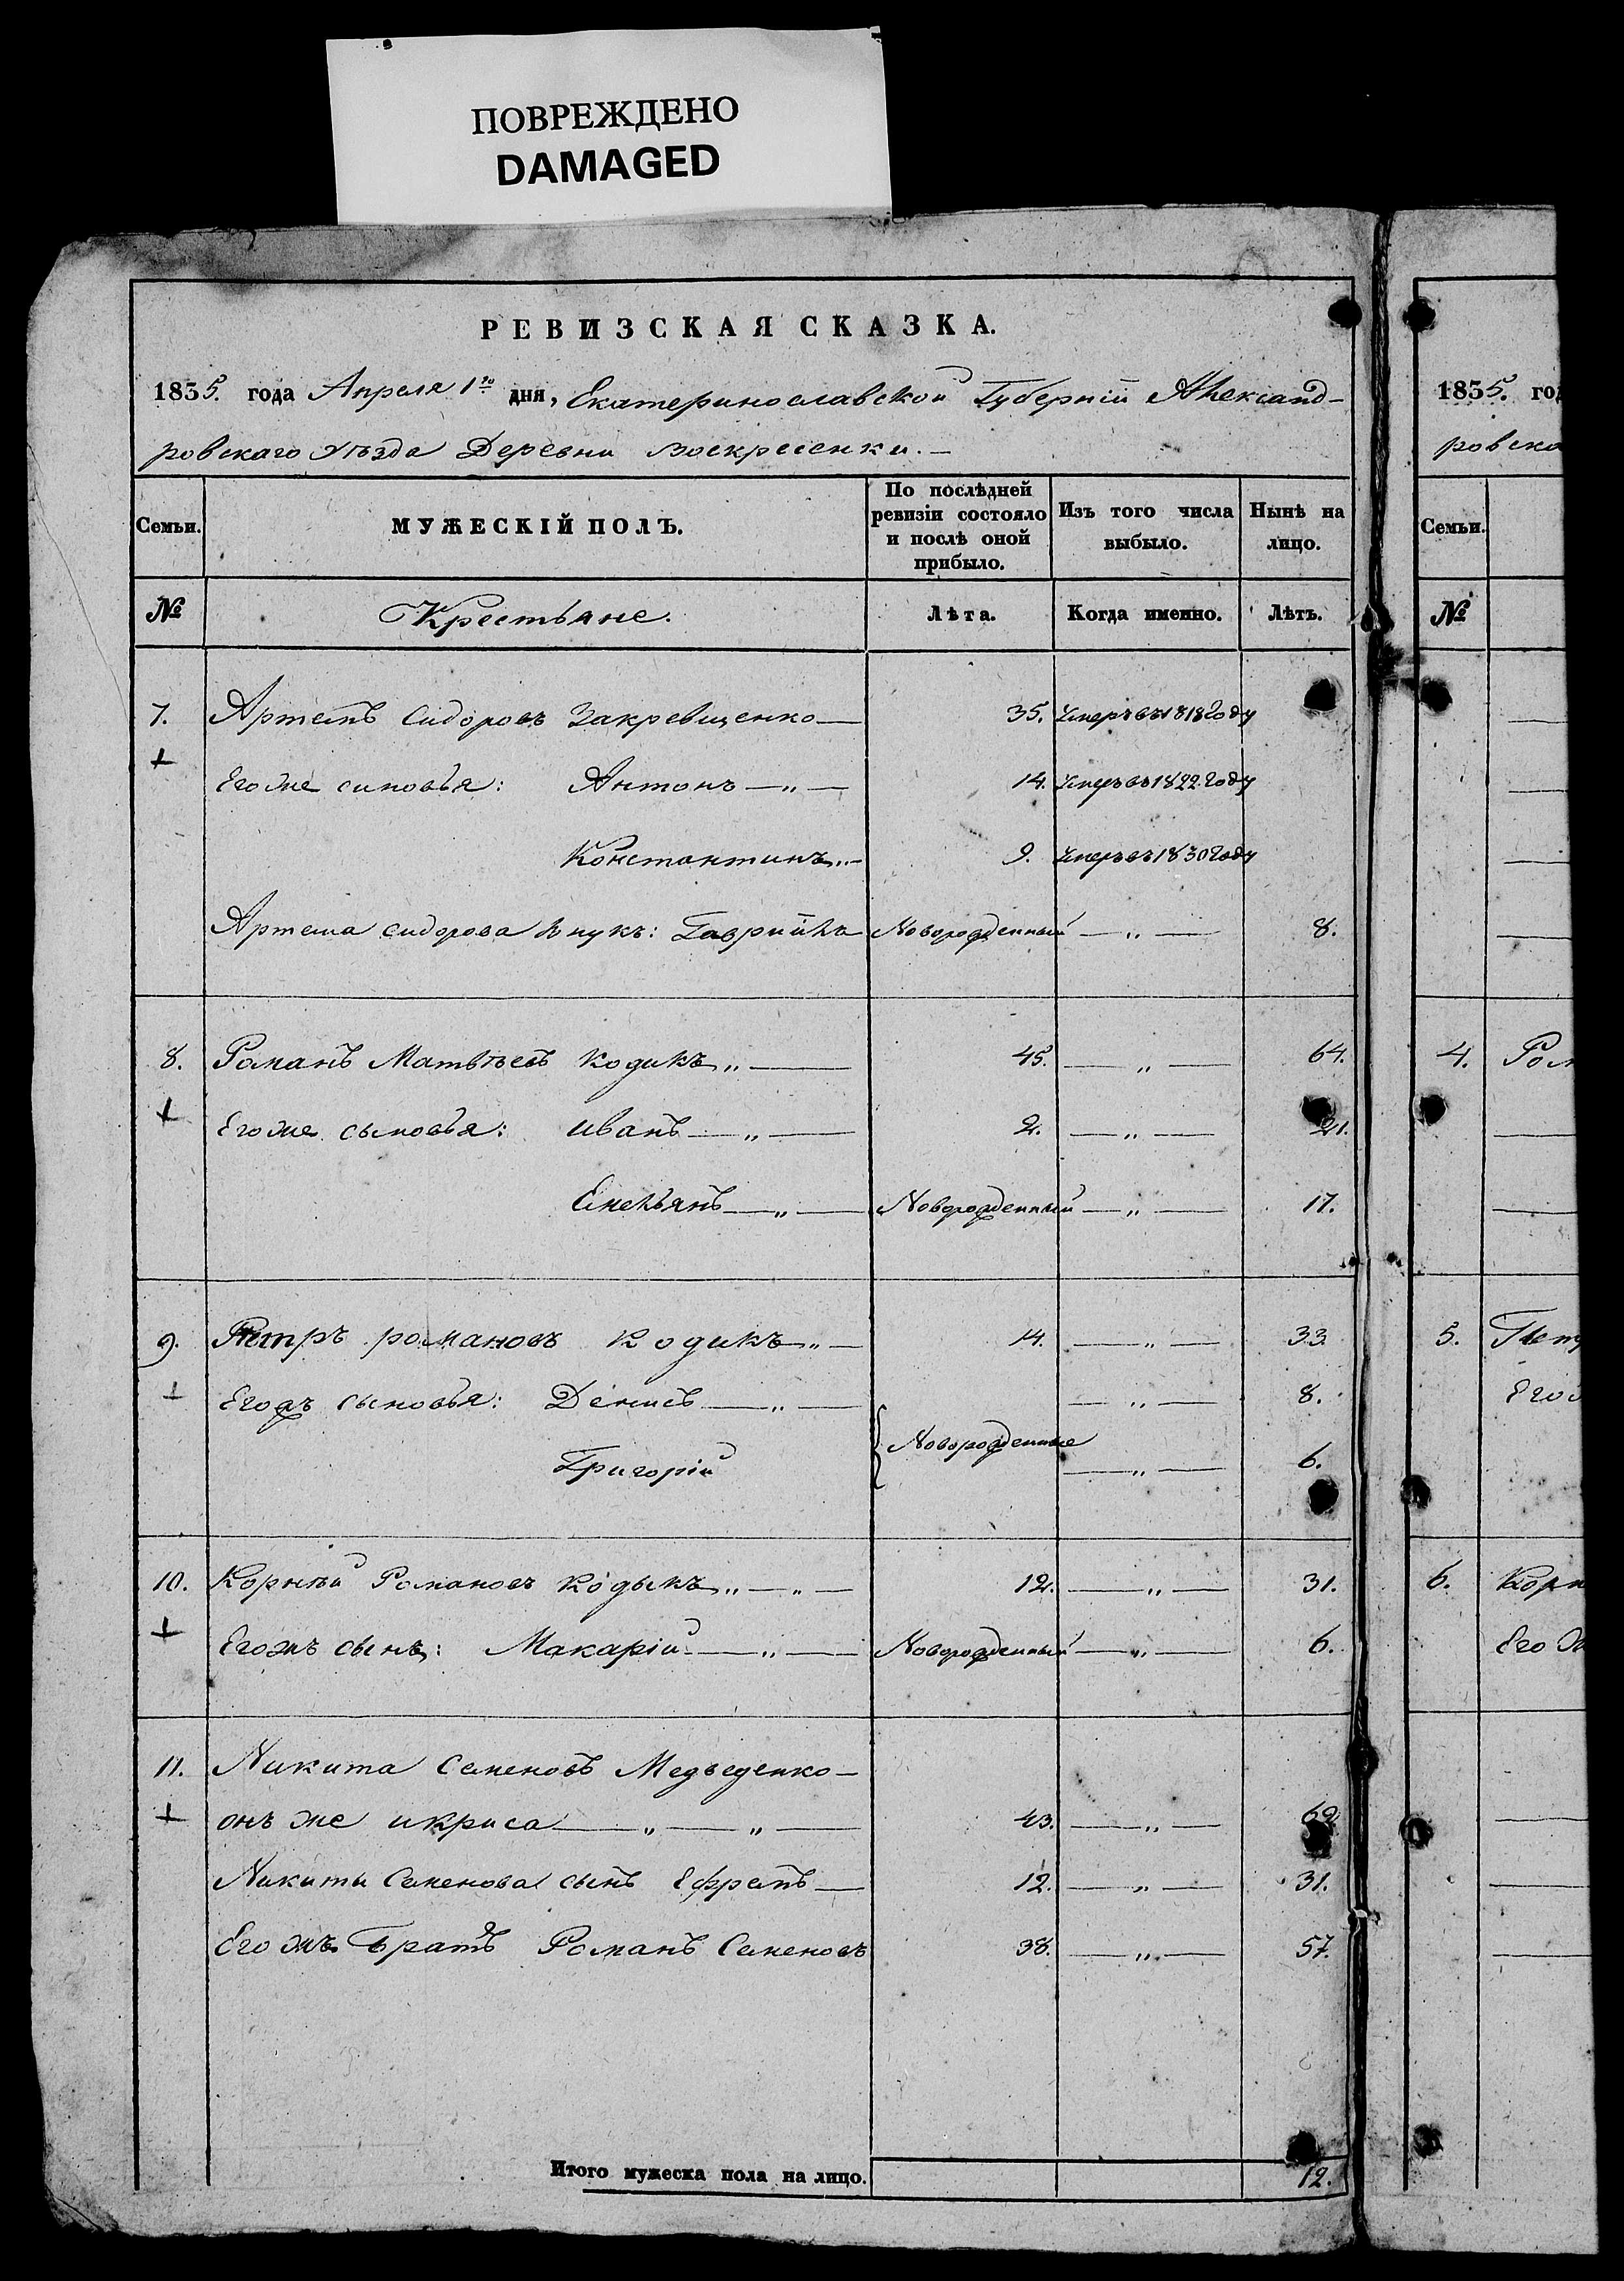 ПОВРЕЖДЕНО
DAMAGED
РЕВИЗСКАЯ СКАЗКА.
1835. года Апреля 1го дня, Екатеринославской Губерніи Александ-
ровскаго уѣзда Деревни воскресенки.—
Семьи. МУЖЕСКІЙ ПОЛЪ. По послѣдней ревизіи состояло и послѣ оной прибыло. Изъ того числа выбыло. Нынѣ на лицо.
№ Крестьяне. Лѣта. Когда именно. Лѣтъ.
7. Артемъ Сидоровъ Закревщенко— 35. Умеръ въ 1818 году
+ Его же синовья: Антонъ—„— 14. Умеръ въ 1822 году
Константинъ„— 9. Умеръ въ 1830 году
Артема сидорова внукъ: Гаврійла Новорожденный —„— 8.
8. Романъ Матвѣевъ Кодикъ„— 45. —„— 64.
+ Его же сыновья: иванъ—„— 2. —„— 21.
Емельянъ—„— Новорожденный —„— 17.
9. Петръ романовъ Кодикъ„— 14. —„— 33.
+ Егожъ сыновья: Денисъ—„— —„— 8.
Новорожденные
Григорій —„— 6.
10. Корнѣй Романовъ Кодыкъ„—„— 12. —„— 31.
+ Егожъ сынъ: Макарій—„— Новорожденный —„— 6.
11. Никита Семеновъ Медведенко—
+ онъ же икриса—„—„— 43. —„— 62
Никиты Семенова сынъ Ефремъ— 12. —„— 31.
Его жъ братъ Романъ Семеновъ 38. —„— 57.
Итого мужеска пола на лицо. 12.
1835. год
ровска
Семьи.
№
4. Ром
5. Петр
Его
6. Корн
Его ж